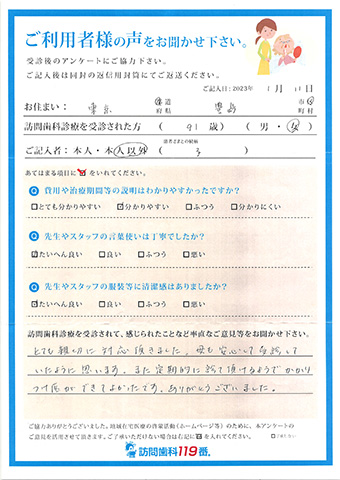 ご利用者様の声をお聞かせ下さい。
受診後のアンケートにご協力下さい。
ご記入後は同封の返信用封筒にてご返送ください。
ご記入日：2023年 1月 11日
お住まい： 東京 都道府県 豊島 市区町村
訪問歯科診療を受診された方 （ 91 歳） （ 男・女 ）
ご記入者：本人・本人以外 患者さまとの続柄（ 子 ）
あてはまる項目に☑をいれてください。
Q 費用や治療期間等の説明はわかりやすかったですか？
□とても分かりやすい ☑分かりやすい □ふつう □分かりにくい
Q 先生やスタッフの言葉使いは丁寧でしたか？
☑たいへん良い □良い □ふつう □悪い
Q 先生やスタッフの服装等に清潔感はありましたか？
☑たいへん良い □良い □ふつう □悪い
訪問歯科診療を受診されて、感じられたことなど率直なご意見等をお聞かせ下さい。
とても親切に対応頂きました。母も安心して受診して
いたように思います。また定期的に診て頂けるようでかかり
つけ医ができてよかったです。ありがとうございました。
ご協力ありがとうございました。地域在宅医療の啓蒙活動（ホームページ等）のために、本アンケートの
ご意見を活用させて頂きます。ご了承いただけない場合は右記に☑を入れてください。
訪問歯科119番。